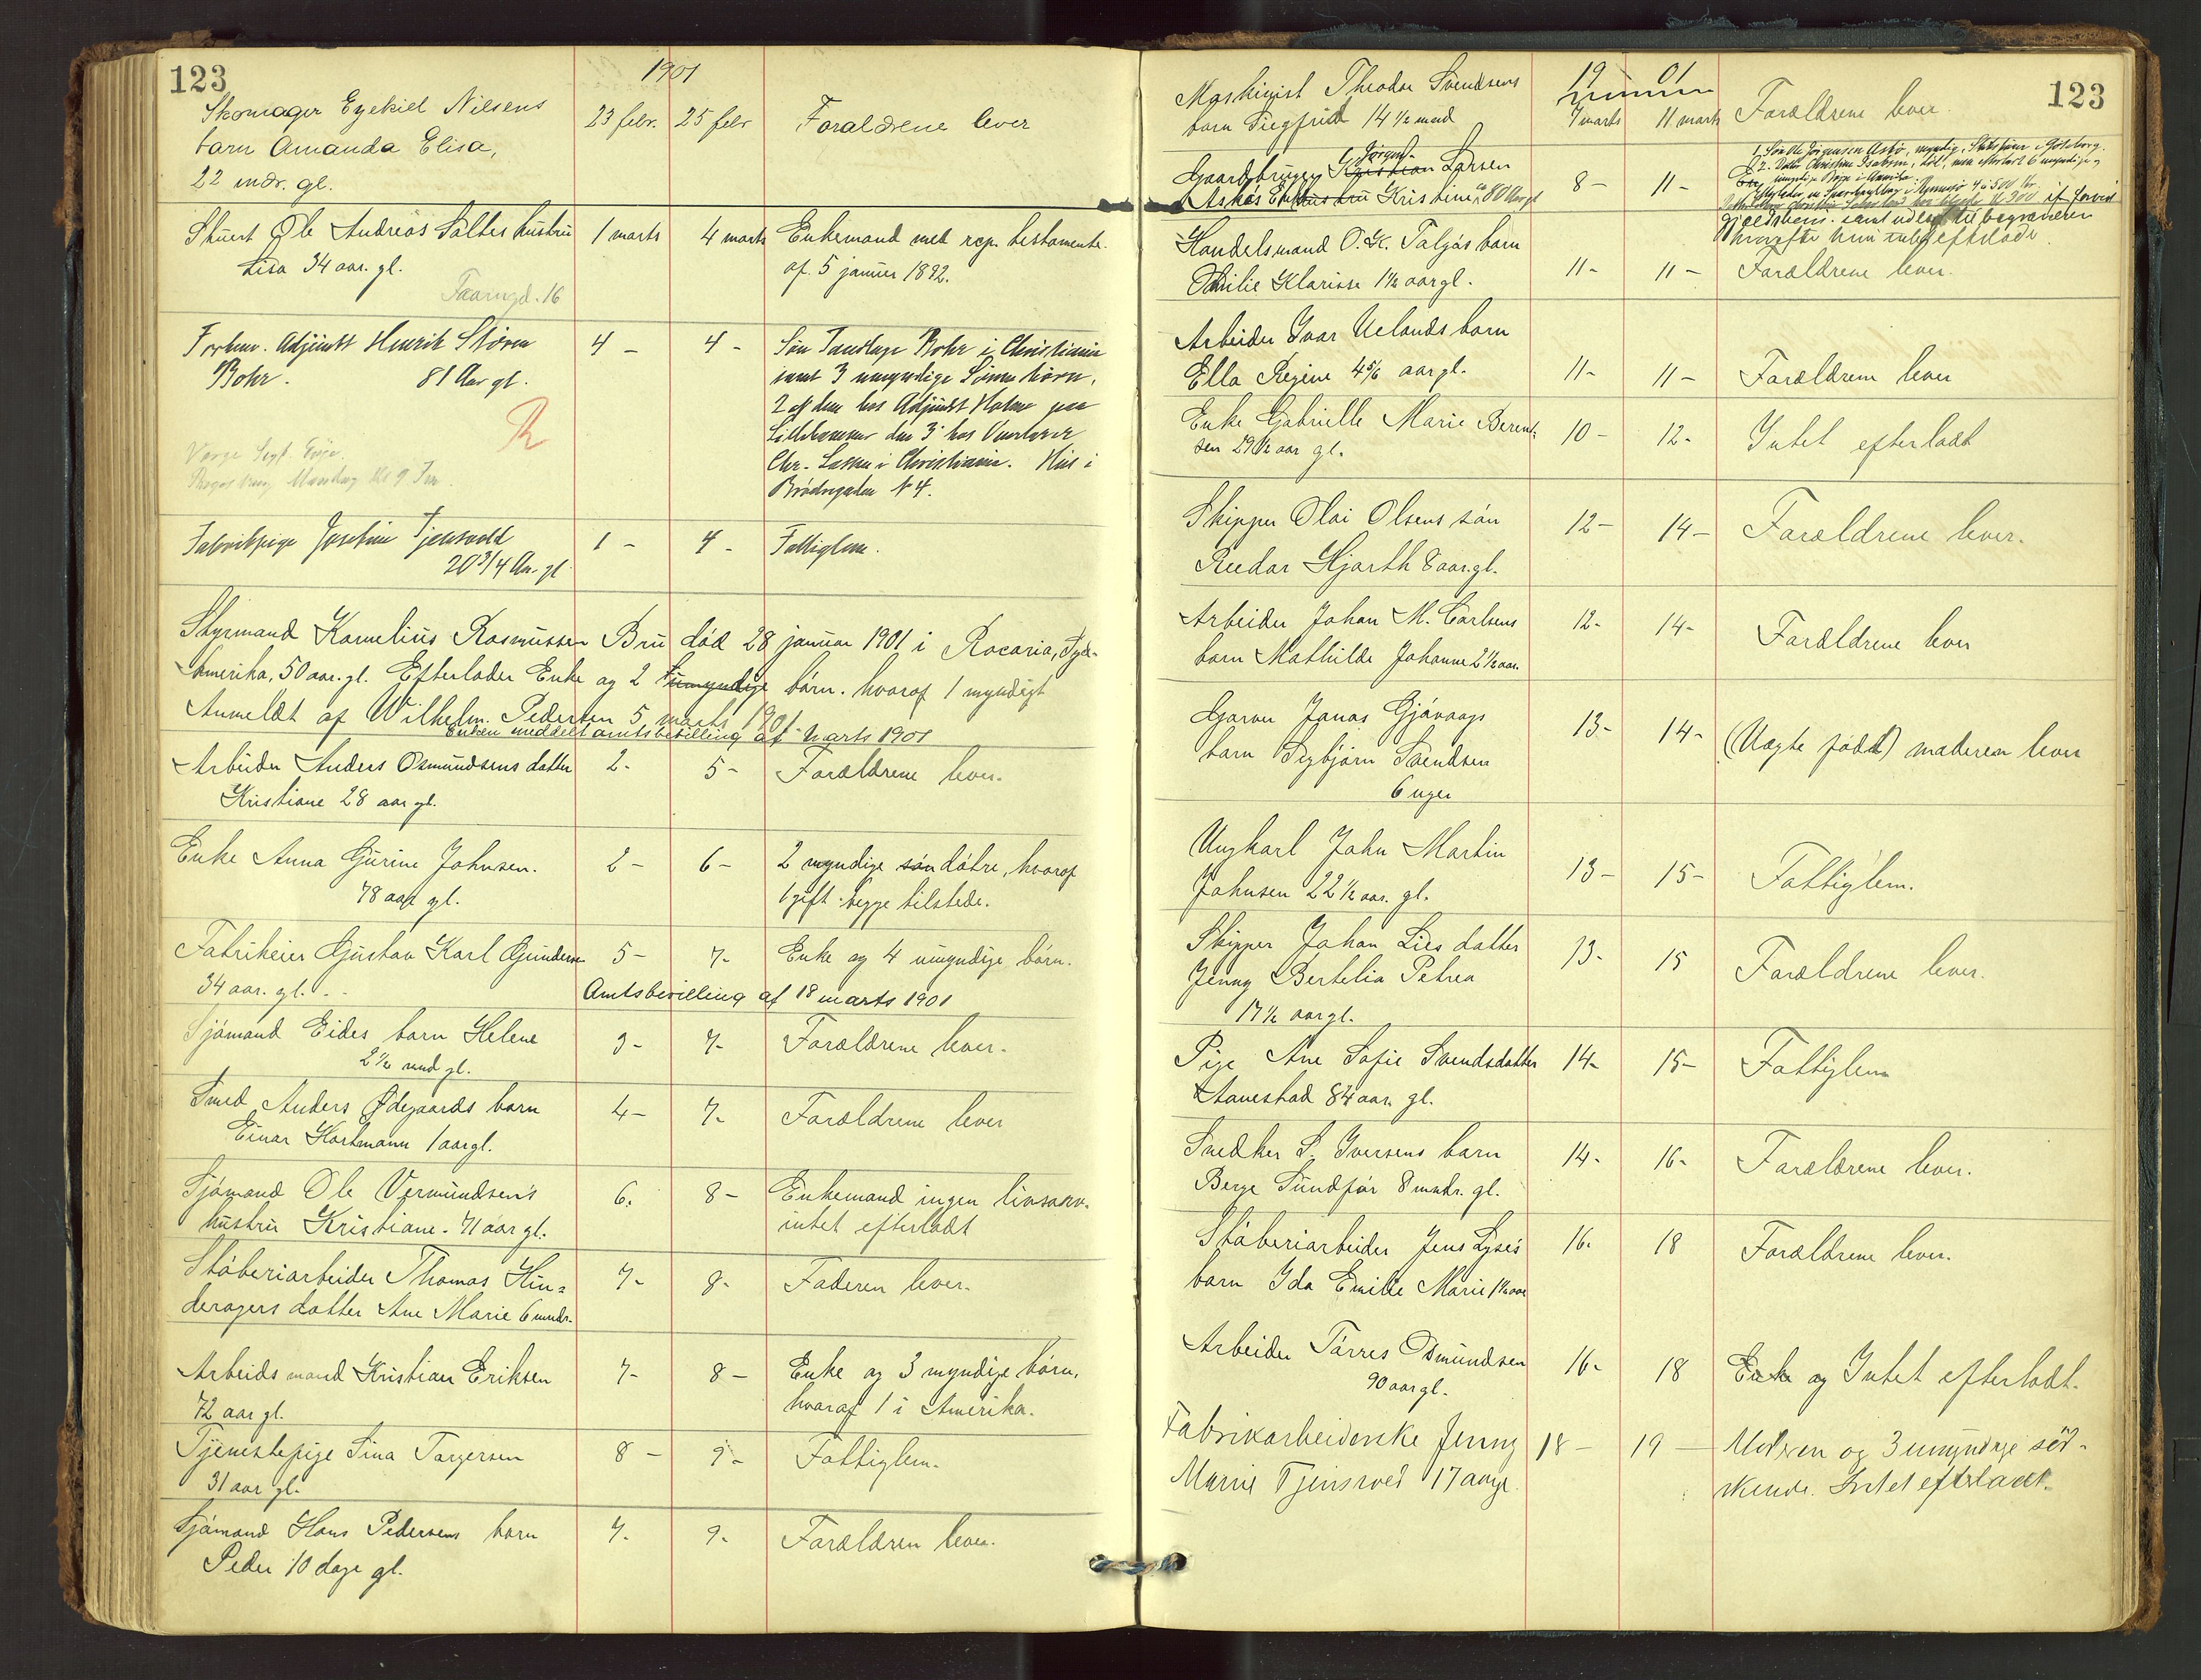 123
1901
Skomager Ezekiel Nilsens 23 febr. 25 febr Forældrene lever
barn Amanda Elisa,
22 mdr. gl.
Skuert Ole Andreas Saltes hustru 1 marts 4 marts Enkemand med rcp. testamente
Lisa 34 aar. gl. af 5 januar 1892.
Taarngd. 16
Forhenv. Adjunkt Henrik Støren 4 - 4 - Søn Tandlæge Rohr i Christiania
Rohr. 81 Aar gl. samt 3 umyndige Sønnebørn,
2 af dem hos Adjunkt Holme paa
Lillehammer den 3' hos
Chr. Lassen i Christiania. Hus i
Brødregaden N 4.
Værge
Mandag kl 9 Frm.
Fabrikpige Josefine Tjensvold 1 - 4 - Fattiglem.
20 3/4 Aar gl
Styrmand Kornelius Rasmussen Bru død 28 januar 1901 i Rocaria, Syd-
Amerika, 50 aar. gl. Efterlader Enke og 2 umyndige børn. hvoraf 1 myndigt
Anmeldt af Wilhelm Pedersen 5 marts 1901
Enken meddelt amtsbevilling af marts 1901
Arbeider Anders Osmundsens datter 2- 5- Forældrene lever.
Kristiane 28 aar gl.
Enke Anna Gurine Johnsen. 2- 6- 2 myndige søn døtre, hvoraf
78 aar gl. 1 gift begge tilstede.
Fabrikeier Gustav Karl Gundersen 5- 7- Enke og 4 umyndige børn.
34 aar. gl. Amtsbevilling af 18 marts 1901
Sjømand Eides barn Helene 3- 7- Forældrene lever.
2 1/2 mnd gl.
Smed Anders Ødegaards barn 4- 7- Forældrene lever
Einar Hartmann 1 aar gl.
Sjømand Ole Vermundsen's 6. 8- Enkemand ingen livsarv.
hustru Kristiane. 71 aar gl. intet efterladt
Støberiarbeider Thomas Hun= 7- 8- Faderen lever.
deragers datter Ane Marie 6 mndr.
Arbeidsmand Kristian Eriksen 7- 8- Enke og 3 myndige børn,
72 aar gl. hvoraf 1 i Amerika.
Tjenestepige Sina Torgersen 8- 9- Fattiglem.
31 aar gl.
Sjømand Hans Pedersens barn 7. 9. Forældren lever.
Peder 10 dage gl.
123
19 01
Maskinist Theodor Svendsens 7 marts 11 marts Forældrene lever.
barn Siegfrid 14 1/2 mnd
Jørgen
Gaardbruger Kristian Larsen 8- 11-
Askøs Enke hustru Kristine 80 Aar gl
1. Søn Ole Jørgensen Askø, myndig, i Gøteborg.
2. Datter Christine
umyndige Børn i Amerika
samt udlæg til begravelsen
efterlader
Handelsmand O. K. Talgøs barn 11- 11- Forældrene lever.
Otilie Klarisse 1 1/2 aar gl.
Arbeider Ivar Uelands barn
Ella Regine 4 5/6 aar gl. 11- 11- Forældrene lever
Enke Gabrielle Marie Berent= 10- 12- Intet efterladt
sen 29 1/2 aar gl.
Skipper Olai Olsens søn 12- 14- Forældrene lever.
Reidar Hjorth 8 aar. gl.
Arbeider Johan M. Carlsens 12- 14- Forældrene lever
barn Mathilde Johanne 2 1/2 aar.
Garver Jonas Gjøvaags 13- 14- (Uægte født) moderen lever
barn Sigbjørn Svendsen
6 uger
Ungkarl John Martin 13- 15- Fattiglem.
Johnsen 22 1/2 aar. gl.
Skipper Johan Lies datter 13- 15 Forældrene lever.
Jenny Bertelia Petrea
17 1/2 aar gl.
Pige Ane Sofie Svendsdatter 14- 15- Fattiglem
Aanestad 84 aar. gl.
Snedker S. Iversens barn 14- 16- Forældrene lever.
Berge Sundfør 8 mndr. gl.
Støberiarbeider Jens Lyse's 16- 18 Forældrene lever.
barn Ida Emilie Marie 1 1/2 aar
Arbeider Tørres Osmundsen 16- 18 Enke og Intet efterladt.
90 aar gl.
Fabrikarbeiderske Jenny 18- 19- Moderen og 3 umyndige sød-
Marie Tjensvold 17 aar gl. skende. Intet efterladt.